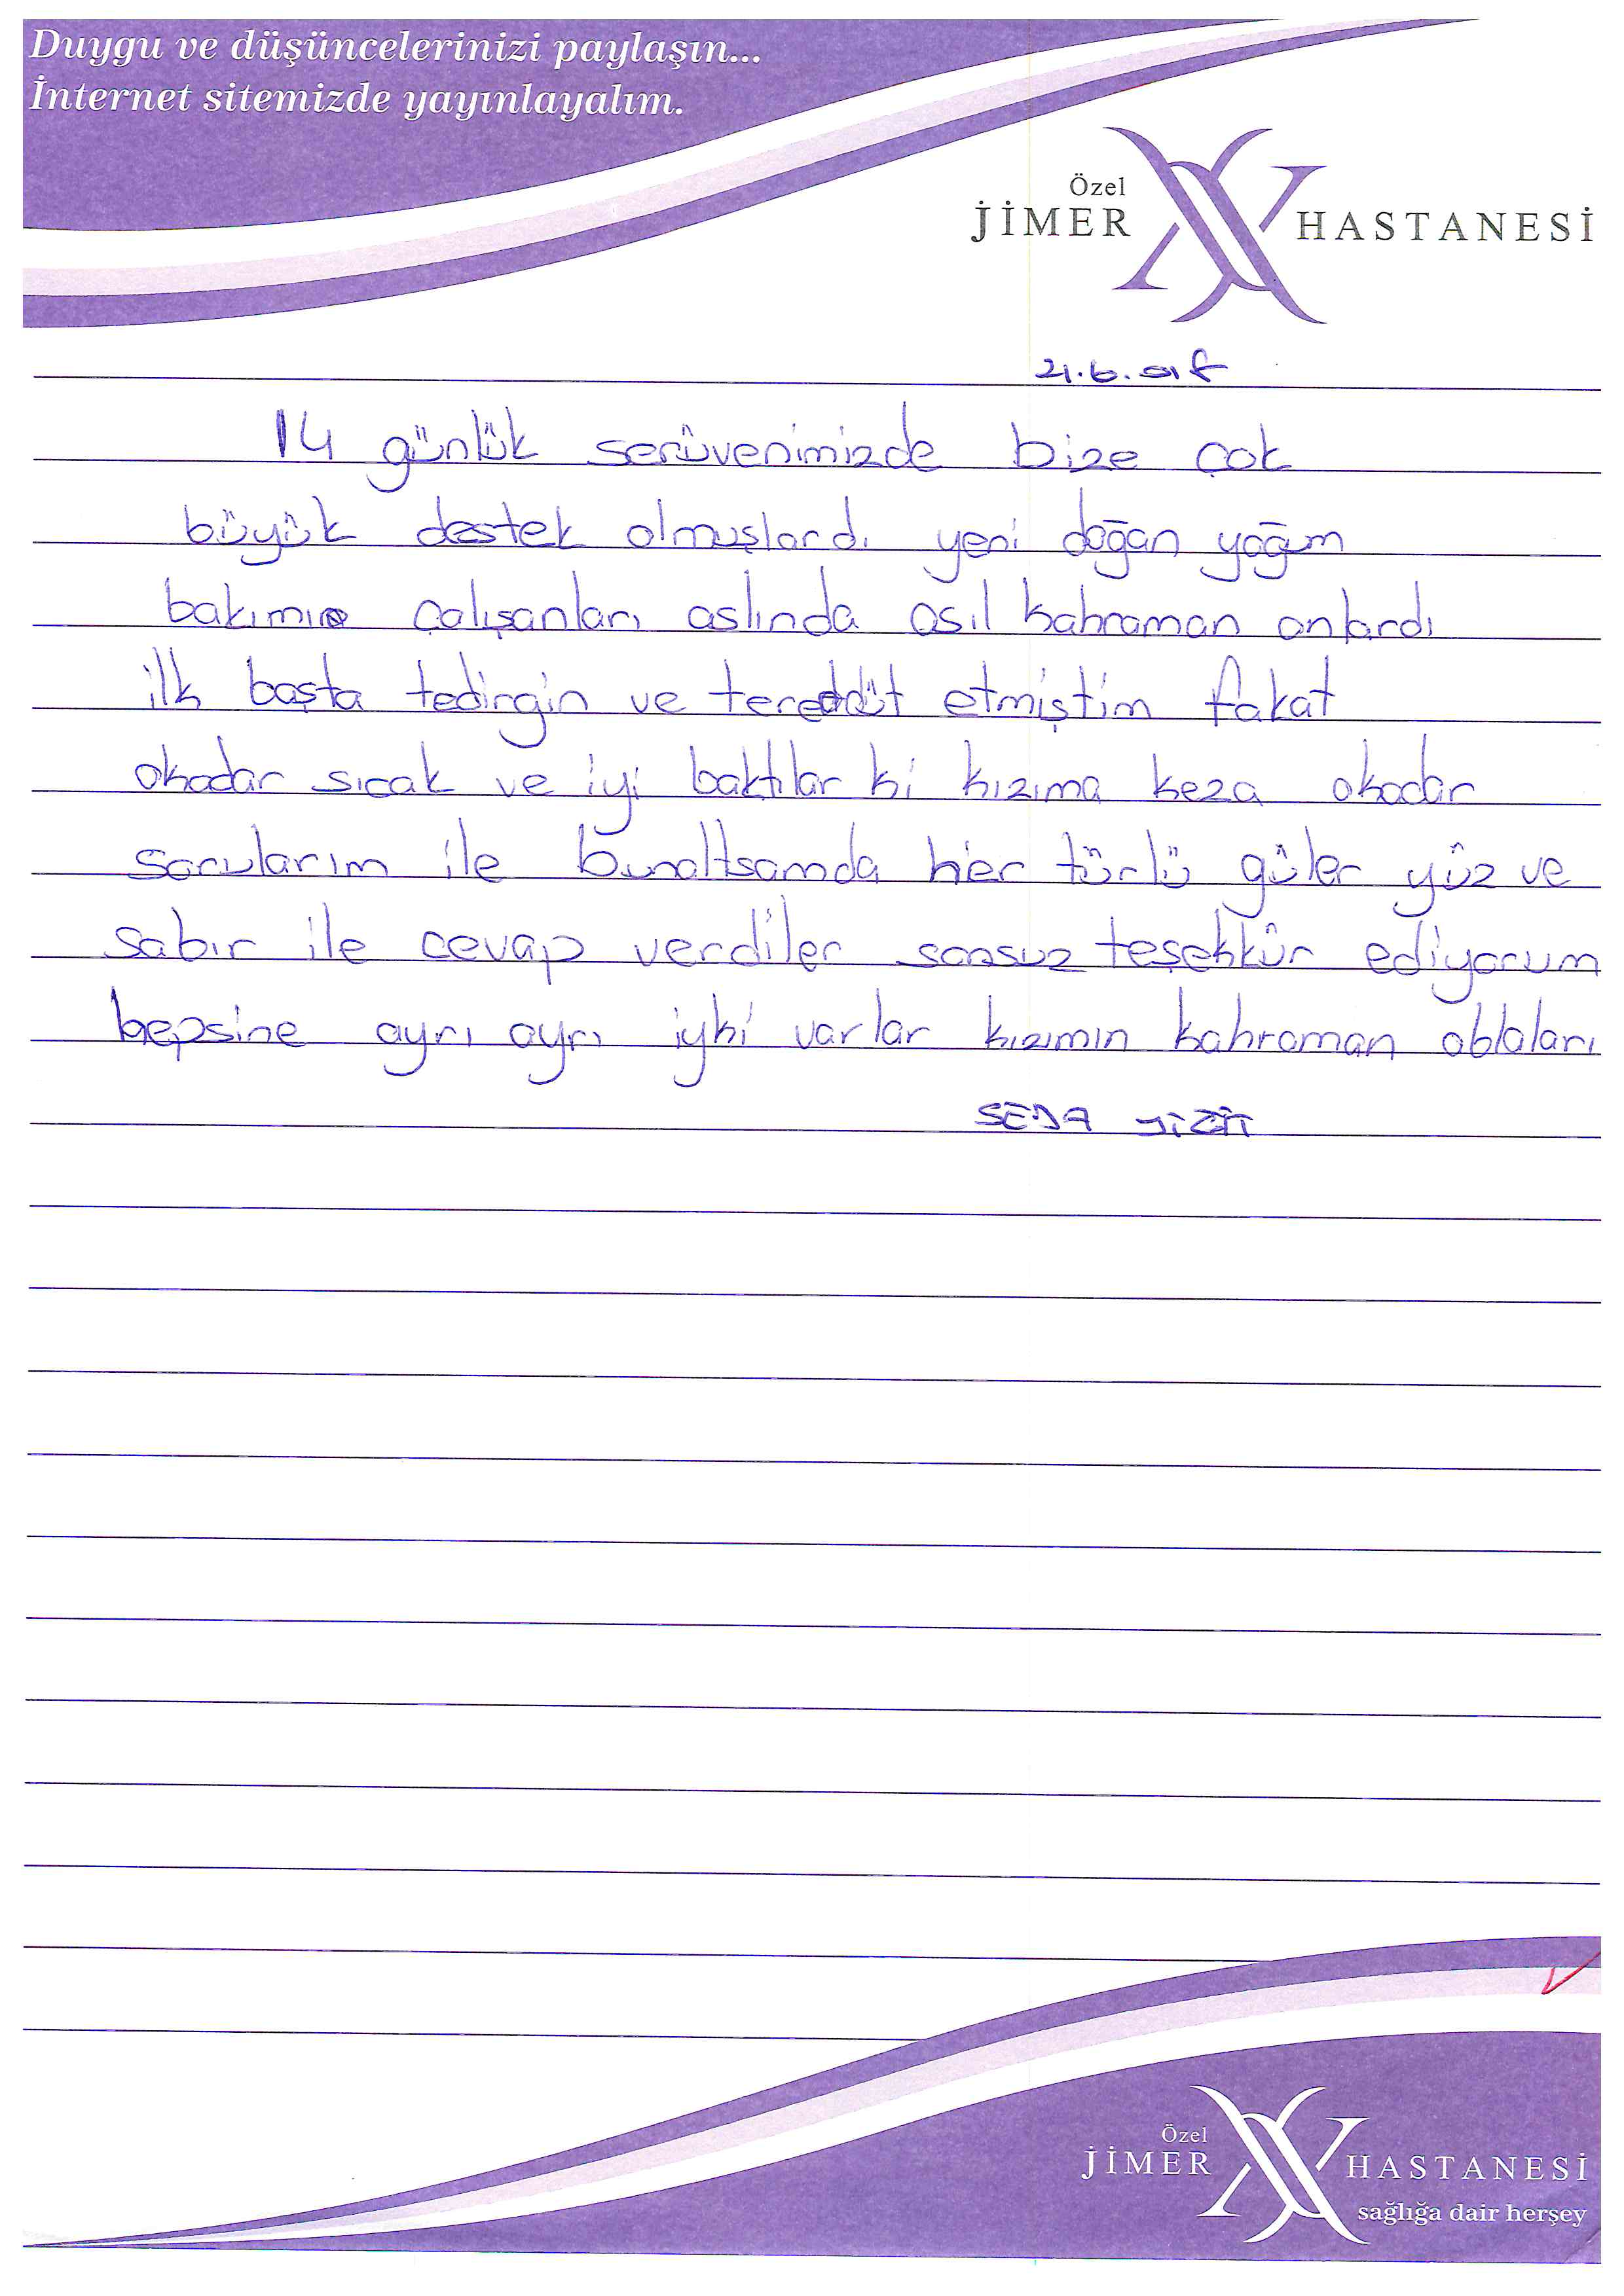 Duygu ve düşüncelerinizi paylaşın...
İnternet sitemizde yayınlayalım.
Özel
JİMER HASTANESİ
14 günlük serüvenimizde bize çok
büyük destek olmuşlardı yeni doğan yoğum
bakımın çalışanları aslında asıl kahraman onlardı
ilk başta tedirgin ve tereddüt etmiştim fakat
okadar sıcak ve iyi baktılar ki kızıma keza okadar
sorularım ile bunaltsamda her türlü güler yüz ve
sabır ile cevap verdiler sonsuz teşekkür ediyorum
hepsine ayrı ayrı iyki varlar kızımın kahraman ablaları
SEDA
Özel
JİMER HASTANESİ
sağlığa dair herşey